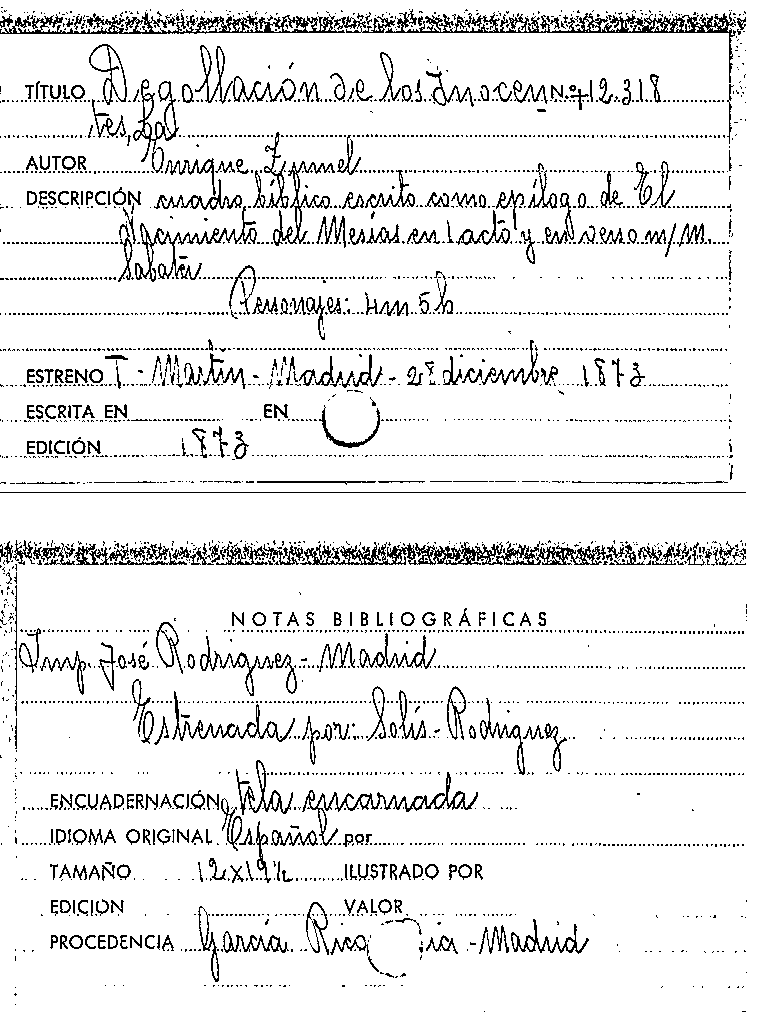 TÍTULO Degollación de los Inocen N.º 12.318
tes, La
AUTOR Enrique Zumel
DESCRIPCIÓN cuadro bíblico escrito como epílogo de El
Nacimiento del Mesías en 1 acto y en verso m/ M.
Sabater
Personajes: 4m 5h
ESTRENO T. Martín - Madrid - 28 diciembre 1873
ESCRITA EN EN
EDICIÓN 1873
NOTAS BIBLIOGRÁFICAS
Imp. José Rodriguez - Madrid
Estrenada por: Solís - Rodriguez
ENCUADERNACIÓN tela encarnada
IDIOMA ORIGINAL Español por
TAMAÑO 12x19½ ILUSTRADO POR
EDICION VALOR
PROCEDENCIA García Rico - Madrid